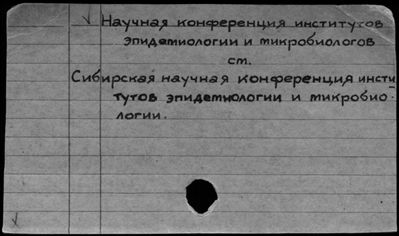 Научная конференция институтов
эпидемиологии и микробиологов
см.
Сибирская научная конференция инсти-
тутов эпидемиологии и микробио-
логии.